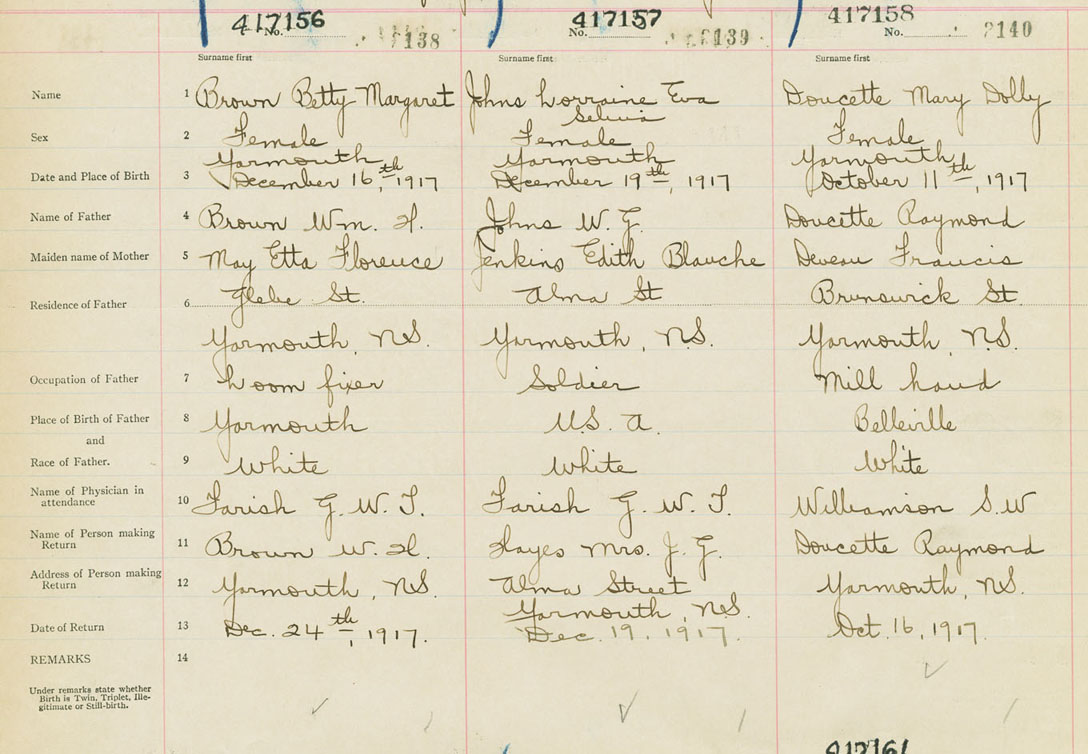 417156 417157 417158
No. 138 No. 139 No. 2140
Surname first Surname first Surname first
Name 1 Brown Betty Margaret Johns Lorraine Eva Doucette Mary Dolly
Selvia
Sex 2 Female Female Female
Yarmouth Yarmouth Yarmouth
Date and Place of Birth 3 December 16,th 1917 December 19th, 1917 October 11th, 1917
Name of Father 4 Brown Wm. H. Johns W. G. Doucette Raymond
Maiden name of Mother 5 May Etta Florence Jenkins Edith Blauche Deveau Francis
Residence of Father 6 Glebe St. Alma St Brunswick St.
Yarmouth, N.S. Yarmouth, N.S. Yarmouth, N.S.
Occupation of Father 7 Loom fixer Soldier Mill hand
Place of Birth of Father 8 Yarmouth U.S. A. Belleville
and
Race of Father. 9 White White White
Name of Physician in
attendance 10 Farish G. W. T. Farish G. W. T. Williamson S.W
Name of Person making
Return 11 Brown W. H. Hayes Mrs. J. G. Doucette Raymond
Address of Person making
Return 12 Yarmouth, N.S. Alma Street Yarmouth, N.S.
Yarmouth, N.S.
Date of Return 13 Dec. 24th, 1917. Dec. 19, 1917. Oct. 16, 1917.
REMARKS 14
Under remarks state whether
Birth is Twin, Triplet, Ille-
gitimate or Still-birth.